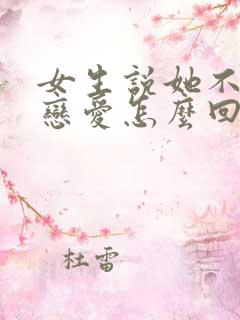 女生說她不
戀愛怎麼回
杜雷